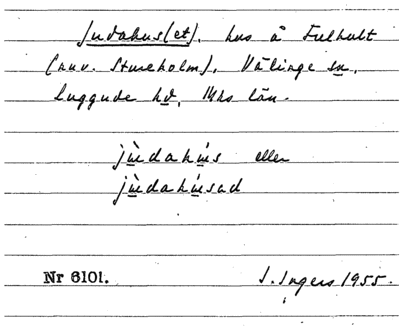 Judahus(et), hus å Fulhult
(nuv. Stureholm), Välinge sn,
Luggude hd, Mhs län.
jùdahús eller
jùdahúsad
Nr 6101.
I. Ingers 1955.